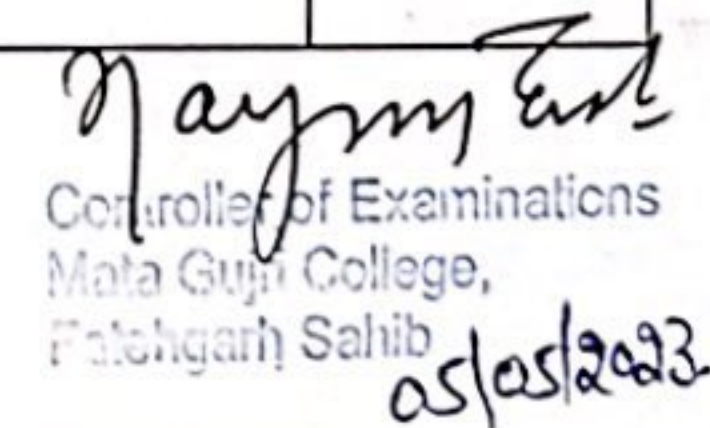 Controller of Examinations
Mata Gujri College,
Fatehgarh Sahib
05/05/2023.